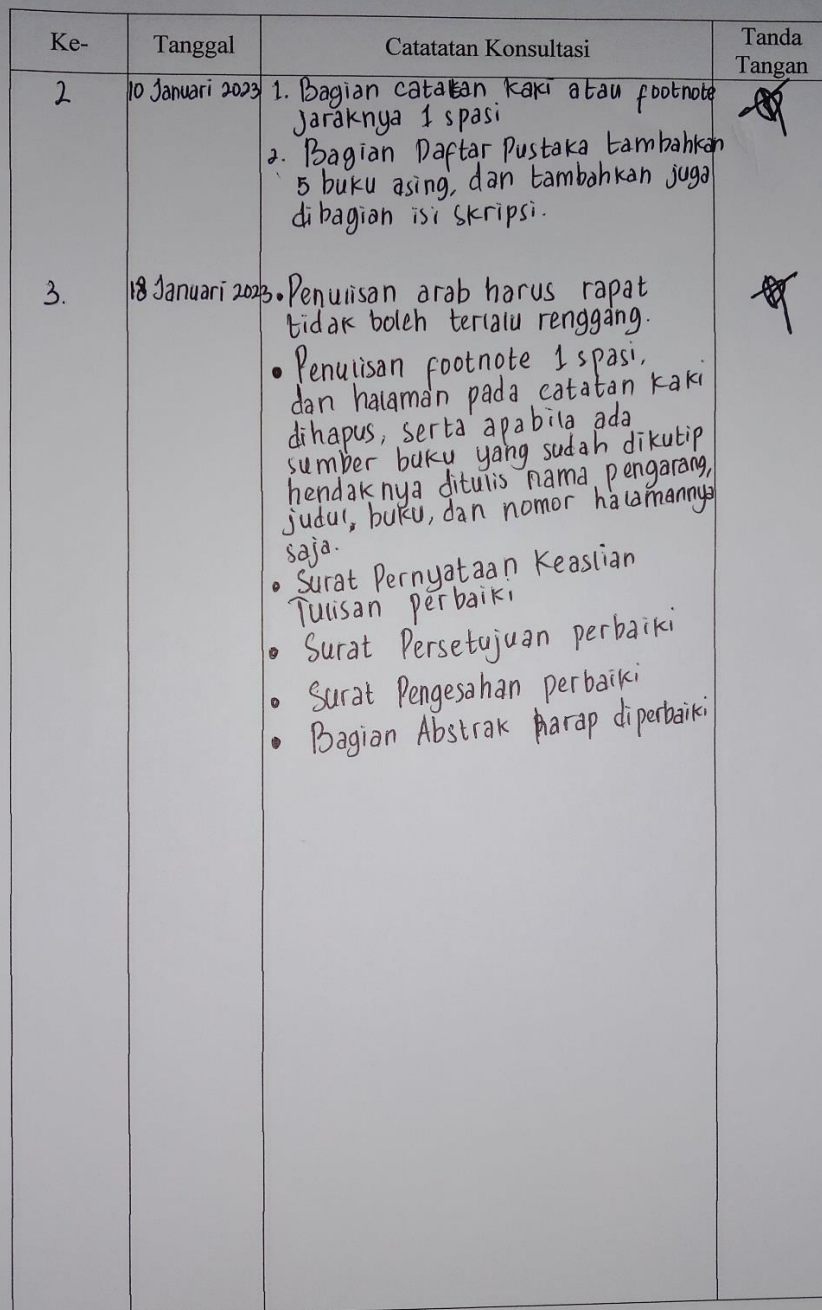 Ke- Tanggal Catatatan Konsultasi Tanda Tangan
2 10 Januari 2023 1. Bagian catatan kaki atau footnote
jaraknya 1 spasi
2. Bagian Daftar Pustaka tambahkan
5 buku asing, dan tambahkan juga
di bagian isi skripsi.
3. 18 Januari 2023 • Penulisan arab harus rapat
tidak boleh terlalu renggang.
• Penulisan footnote 1 spasi,
dan halaman pada catatan kaki
dihapus, serta apabila ada
sumber buku yang sudah dikutip
hendaknya ditulis nama pengarang,
judul, buku, dan nomor halamannya
saja.
• Surat Pernyataan Keaslian
Tulisan perbaiki
• Surat Persetujuan perbaiki
• Surat Pengesahan perbaiki
• Bagian Abstrak harap diperbaiki